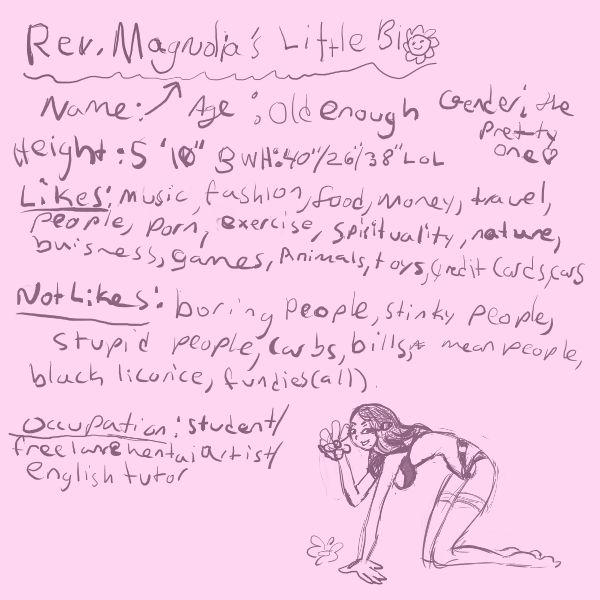 Rev. Magnolia's Little Bio
Name: Age: Old enough Gender: the
pretty
one
Height: 5'10" BWH: 40"/26"/38" LOL
Likes: music, fashion, food, money, travel,
people, porn, exercise, spirituality, nature,
buisness, games, Animals, toys, credit cards, cars
Not Likes: boring people, stinky people,
stupid people, carbs, bills, mean people,
black licorice, fundies (all)
Occupation: student/
freelance hentai artist/
english tutor